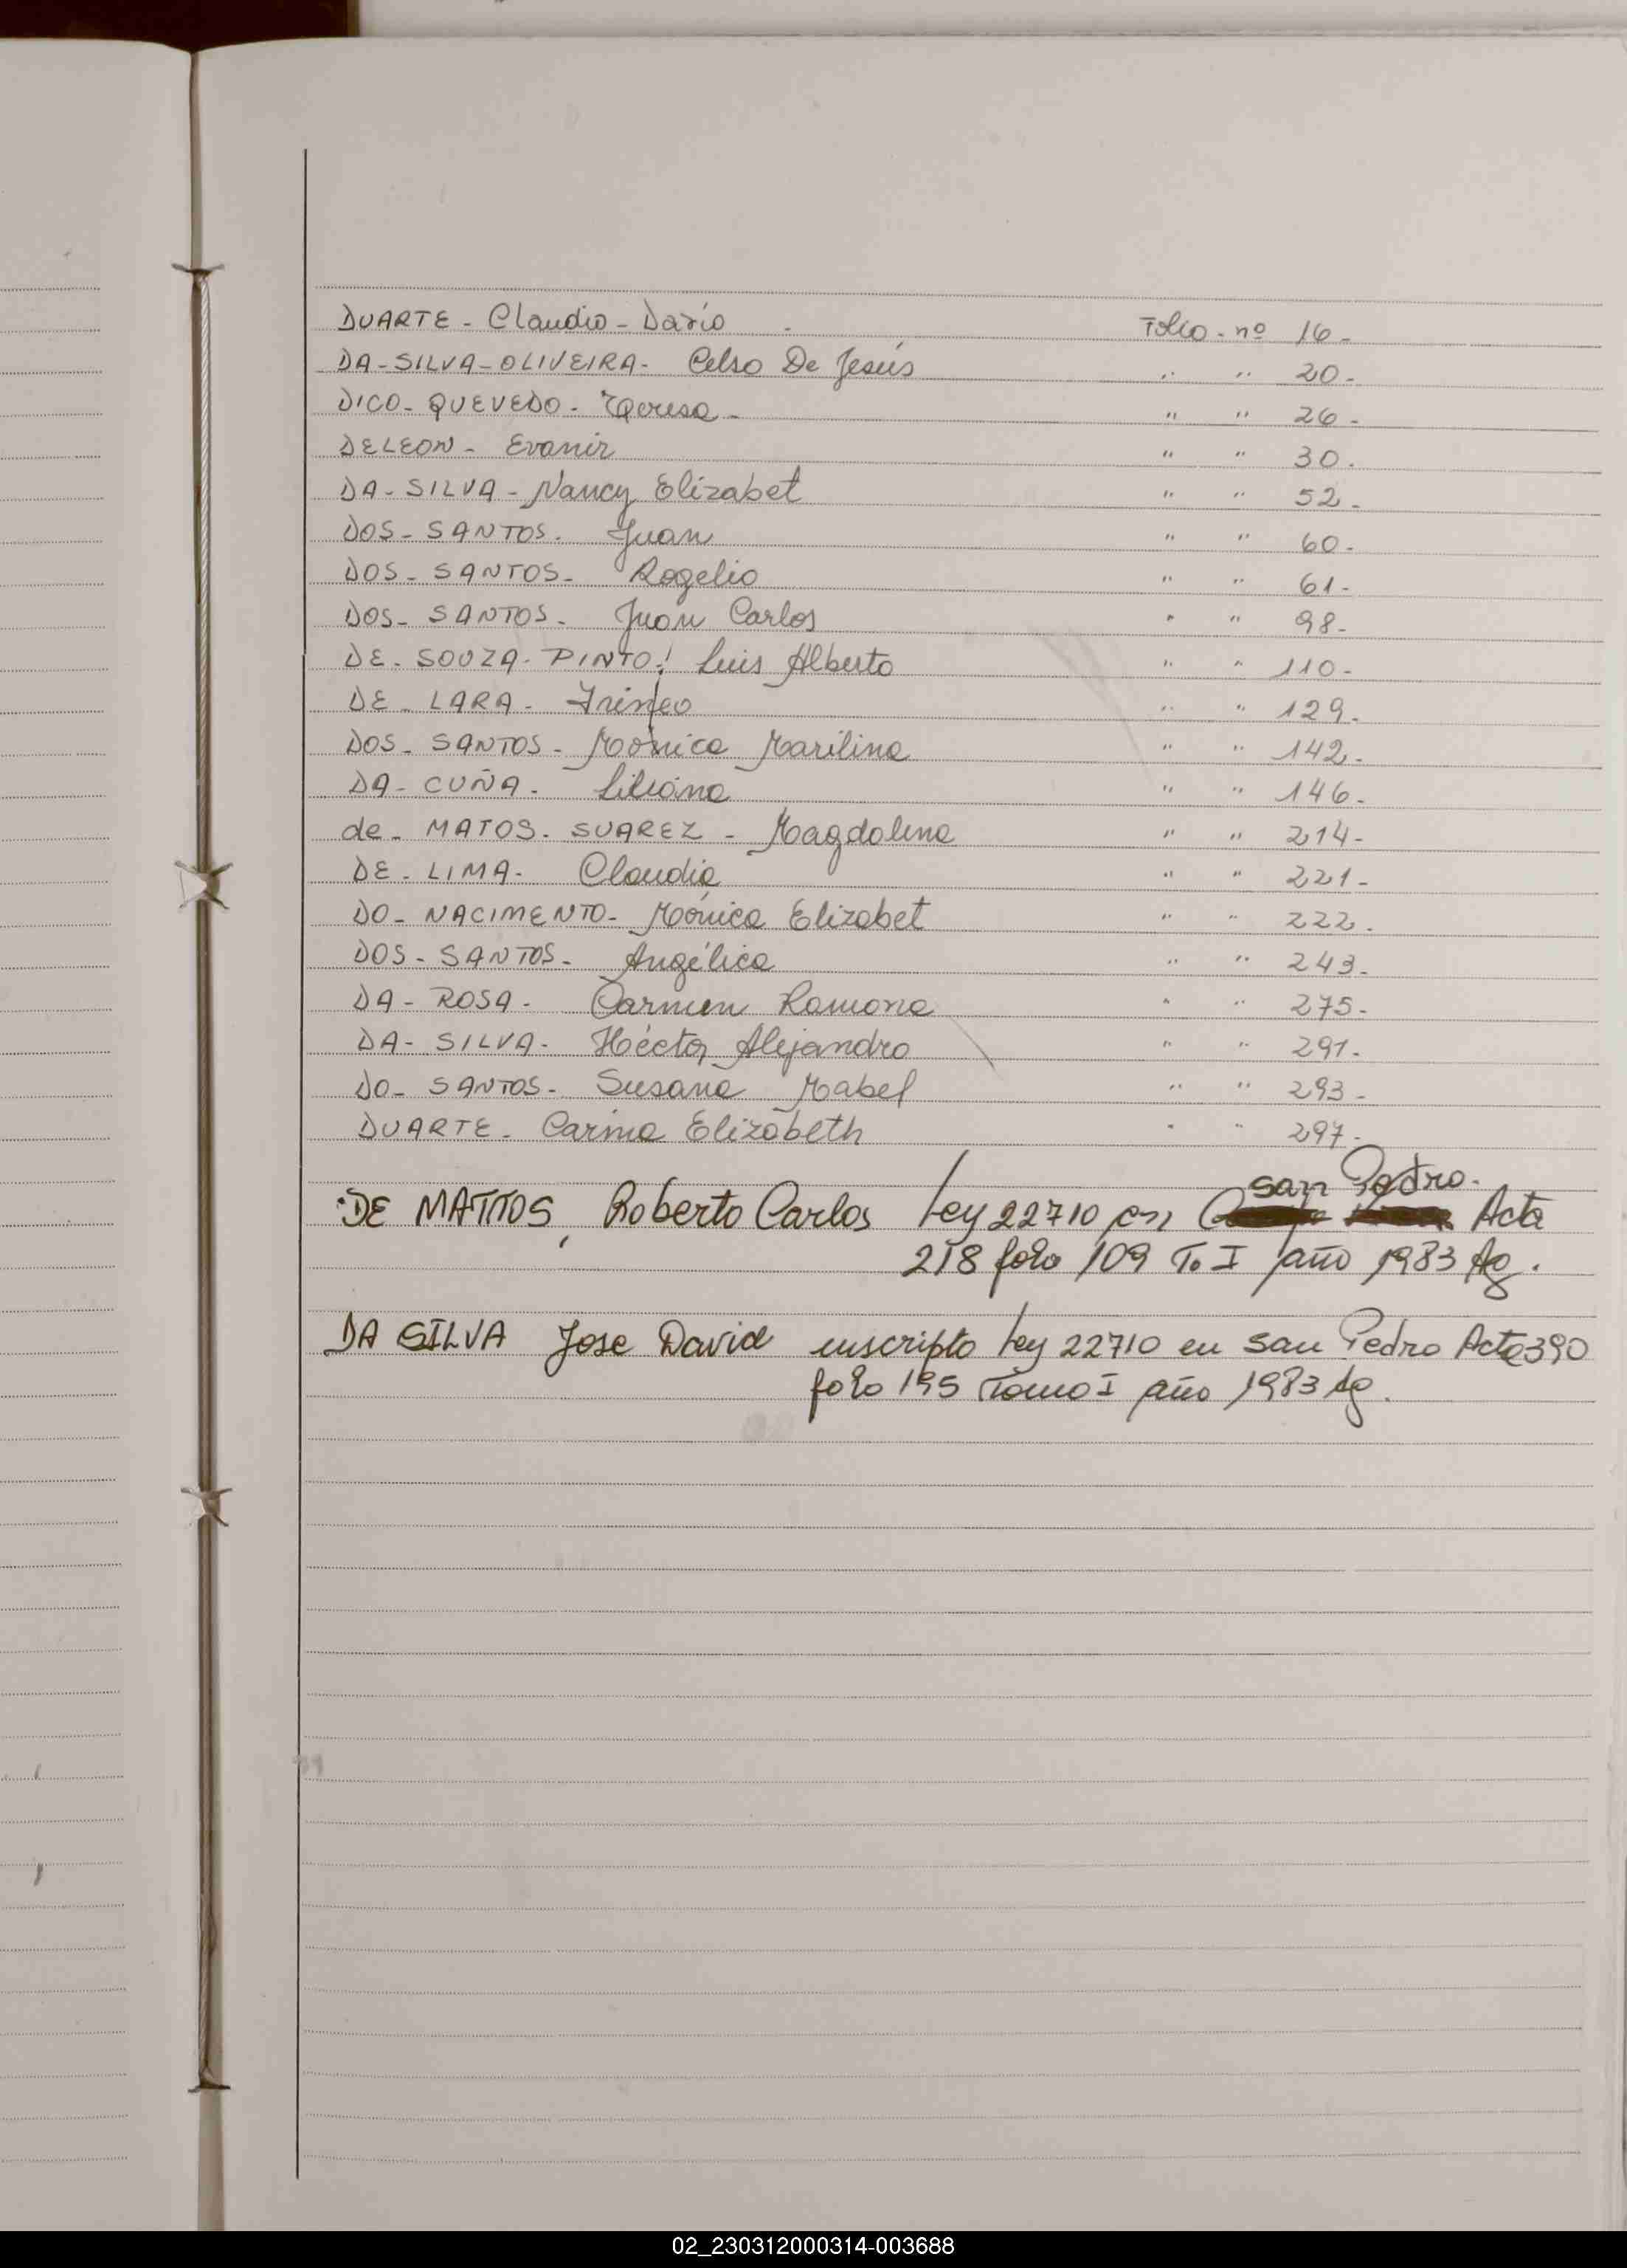 DUARTE - Claudio - Darío - Folio - nº 16 -
DA - SILVA - OLIVEIRA - Celso De Jesús " " 20 -
DICO - QUEVEDO - Teresa - " " 26 -
DELEON - Evanir " " 30 .
DA - SILVA - Nancy Elizabet " " 52 -
DOS - SANTOS . Juan " " 60 -
DOS - SANTOS - Rogelio " " 61 -
DOS - SANTOS - Juan Carlos " " 98 -
DE - SOUZA - PINTO . Luis Alberto " " 110 -
DE - LARA - Irineo " " 129 -
DOS - SANTOS - Mónica Marilina " " 142 -
DA - CUÑA - Liliana " " 146 -
de - MATOS - SUAREZ - Magdalena " " 214 -
DE - LIMA - Claudia " " 221 -
DO - NACIMENTO - Mónica Elizabet " " 222 .
DOS - SANTOS - Angélica " " 243 -
DA - ROSA - Carmen Ramona " " 275 -
DA - SILVA - Héctor Alejandro " " 291 -
DO - SANTOS - Susana Mabel " " 293 -
DUARTE - Carina Elizabeth " " 297 -
san Pedro.
DE MATTOS, Roberto Carlos Ley 22710 en Acta
218 folio 109 To I año 1983 Ag.
DA SILVA Jose David inscripto Ley 22710 en San Pedro Acta 390
folio 195 Tomo I año 1983 Ag.
02_230312000314-003688